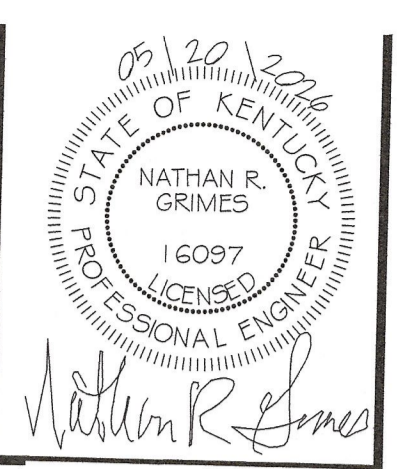 05|20|2026
STATE OF KENTUCKY
NATHAN R.
GRIMES
16097
LICENSED
PROFESSIONAL ENGINEER
Nathan R Grimes